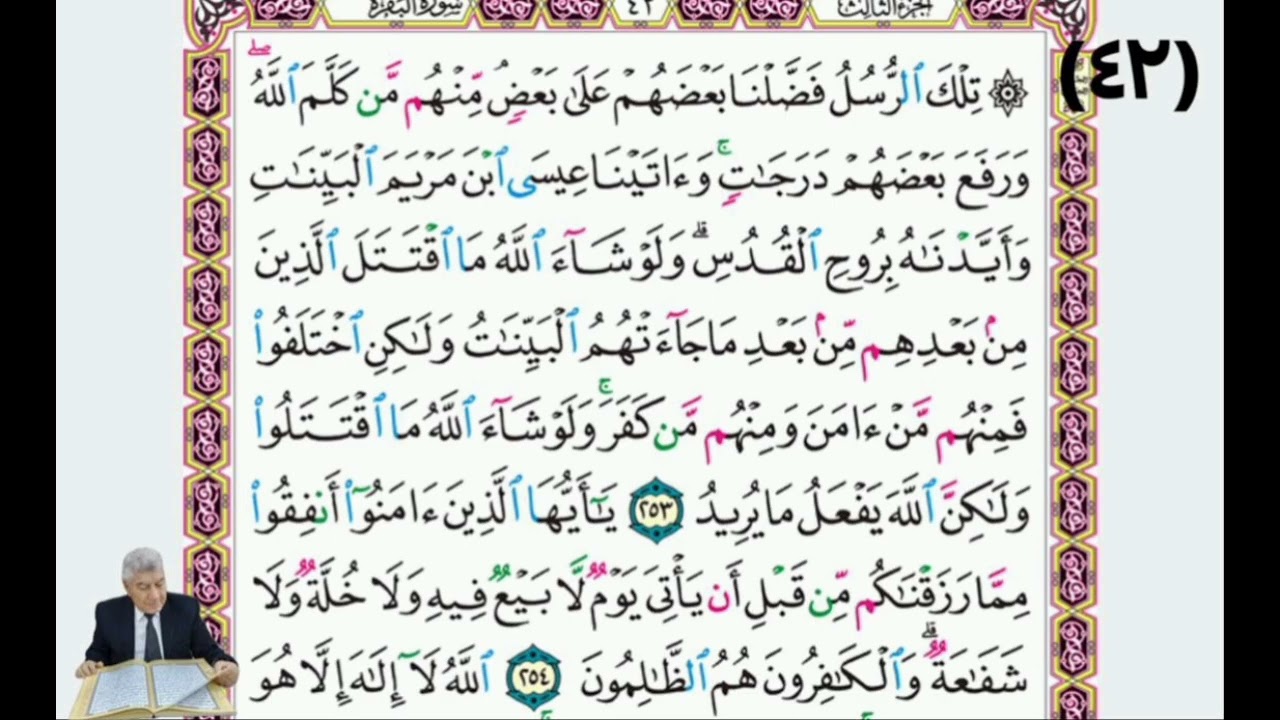 الجزء الثالث ٤٢ سورة البقرة
(٤٢)
۞ تِلْكَ ٱلرُّسُلُ فَضَّلْنَا بَعْضَهُمْ عَلَىٰ بَعْضٍۢ ۘ مِّنْهُم مَّن كَلَّمَ ٱللَّهُ ۖ
وَرَفَعَ بَعْضَهُمْ دَرَجَـٰتٍۢ ۚ وَءَاتَيْنَا عِيسَى ٱبْنَ مَرْيَمَ ٱلْبَيِّنَـٰتِ
وَأَيَّدْنَـٰهُ بِرُوحِ ٱلْقُدُسِ ۗ وَلَوْ شَآءَ ٱللَّهُ مَا ٱقْتَتَلَ ٱلَّذِينَ
مِنۢ بَعْدِهِم مِّنۢ بَعْدِ مَا جَآءَتْهُمُ ٱلْبَيِّنَـٰتُ وَلَـٰكِنِ ٱخْتَلَفُوا۟
فَمِنْهُم مَّنْ ءَامَنَ وَمِنْهُم مَّن كَفَرَ ۚ وَلَوْ شَآءَ ٱللَّهُ مَا ٱقْتَتَلُوا۟
وَلَـٰكِنَّ ٱللَّهَ يَفْعَلُ مَا يُرِيدُ ٢٥٣ يَـٰٓأَيُّهَا ٱلَّذِينَ ءَامَنُوٓا۟ أَنفِقُوا۟
مِمَّا رَزَقْنَـٰكُم مِّن قَبْلِ أَن يَأْتِىَ يَوْمٌۭ لَّا بَيْعٌۭ فِيهِ وَلَا خُلَّةٌۭ وَلَا
شَفَـٰعَةٌۭ ۗ وَٱلْكَـٰفِرُونَ هُمُ ٱلظَّـٰلِمُونَ ٢٥٤ ٱللَّهُ لَآ إِلَـٰهَ إِلَّا هُوَ